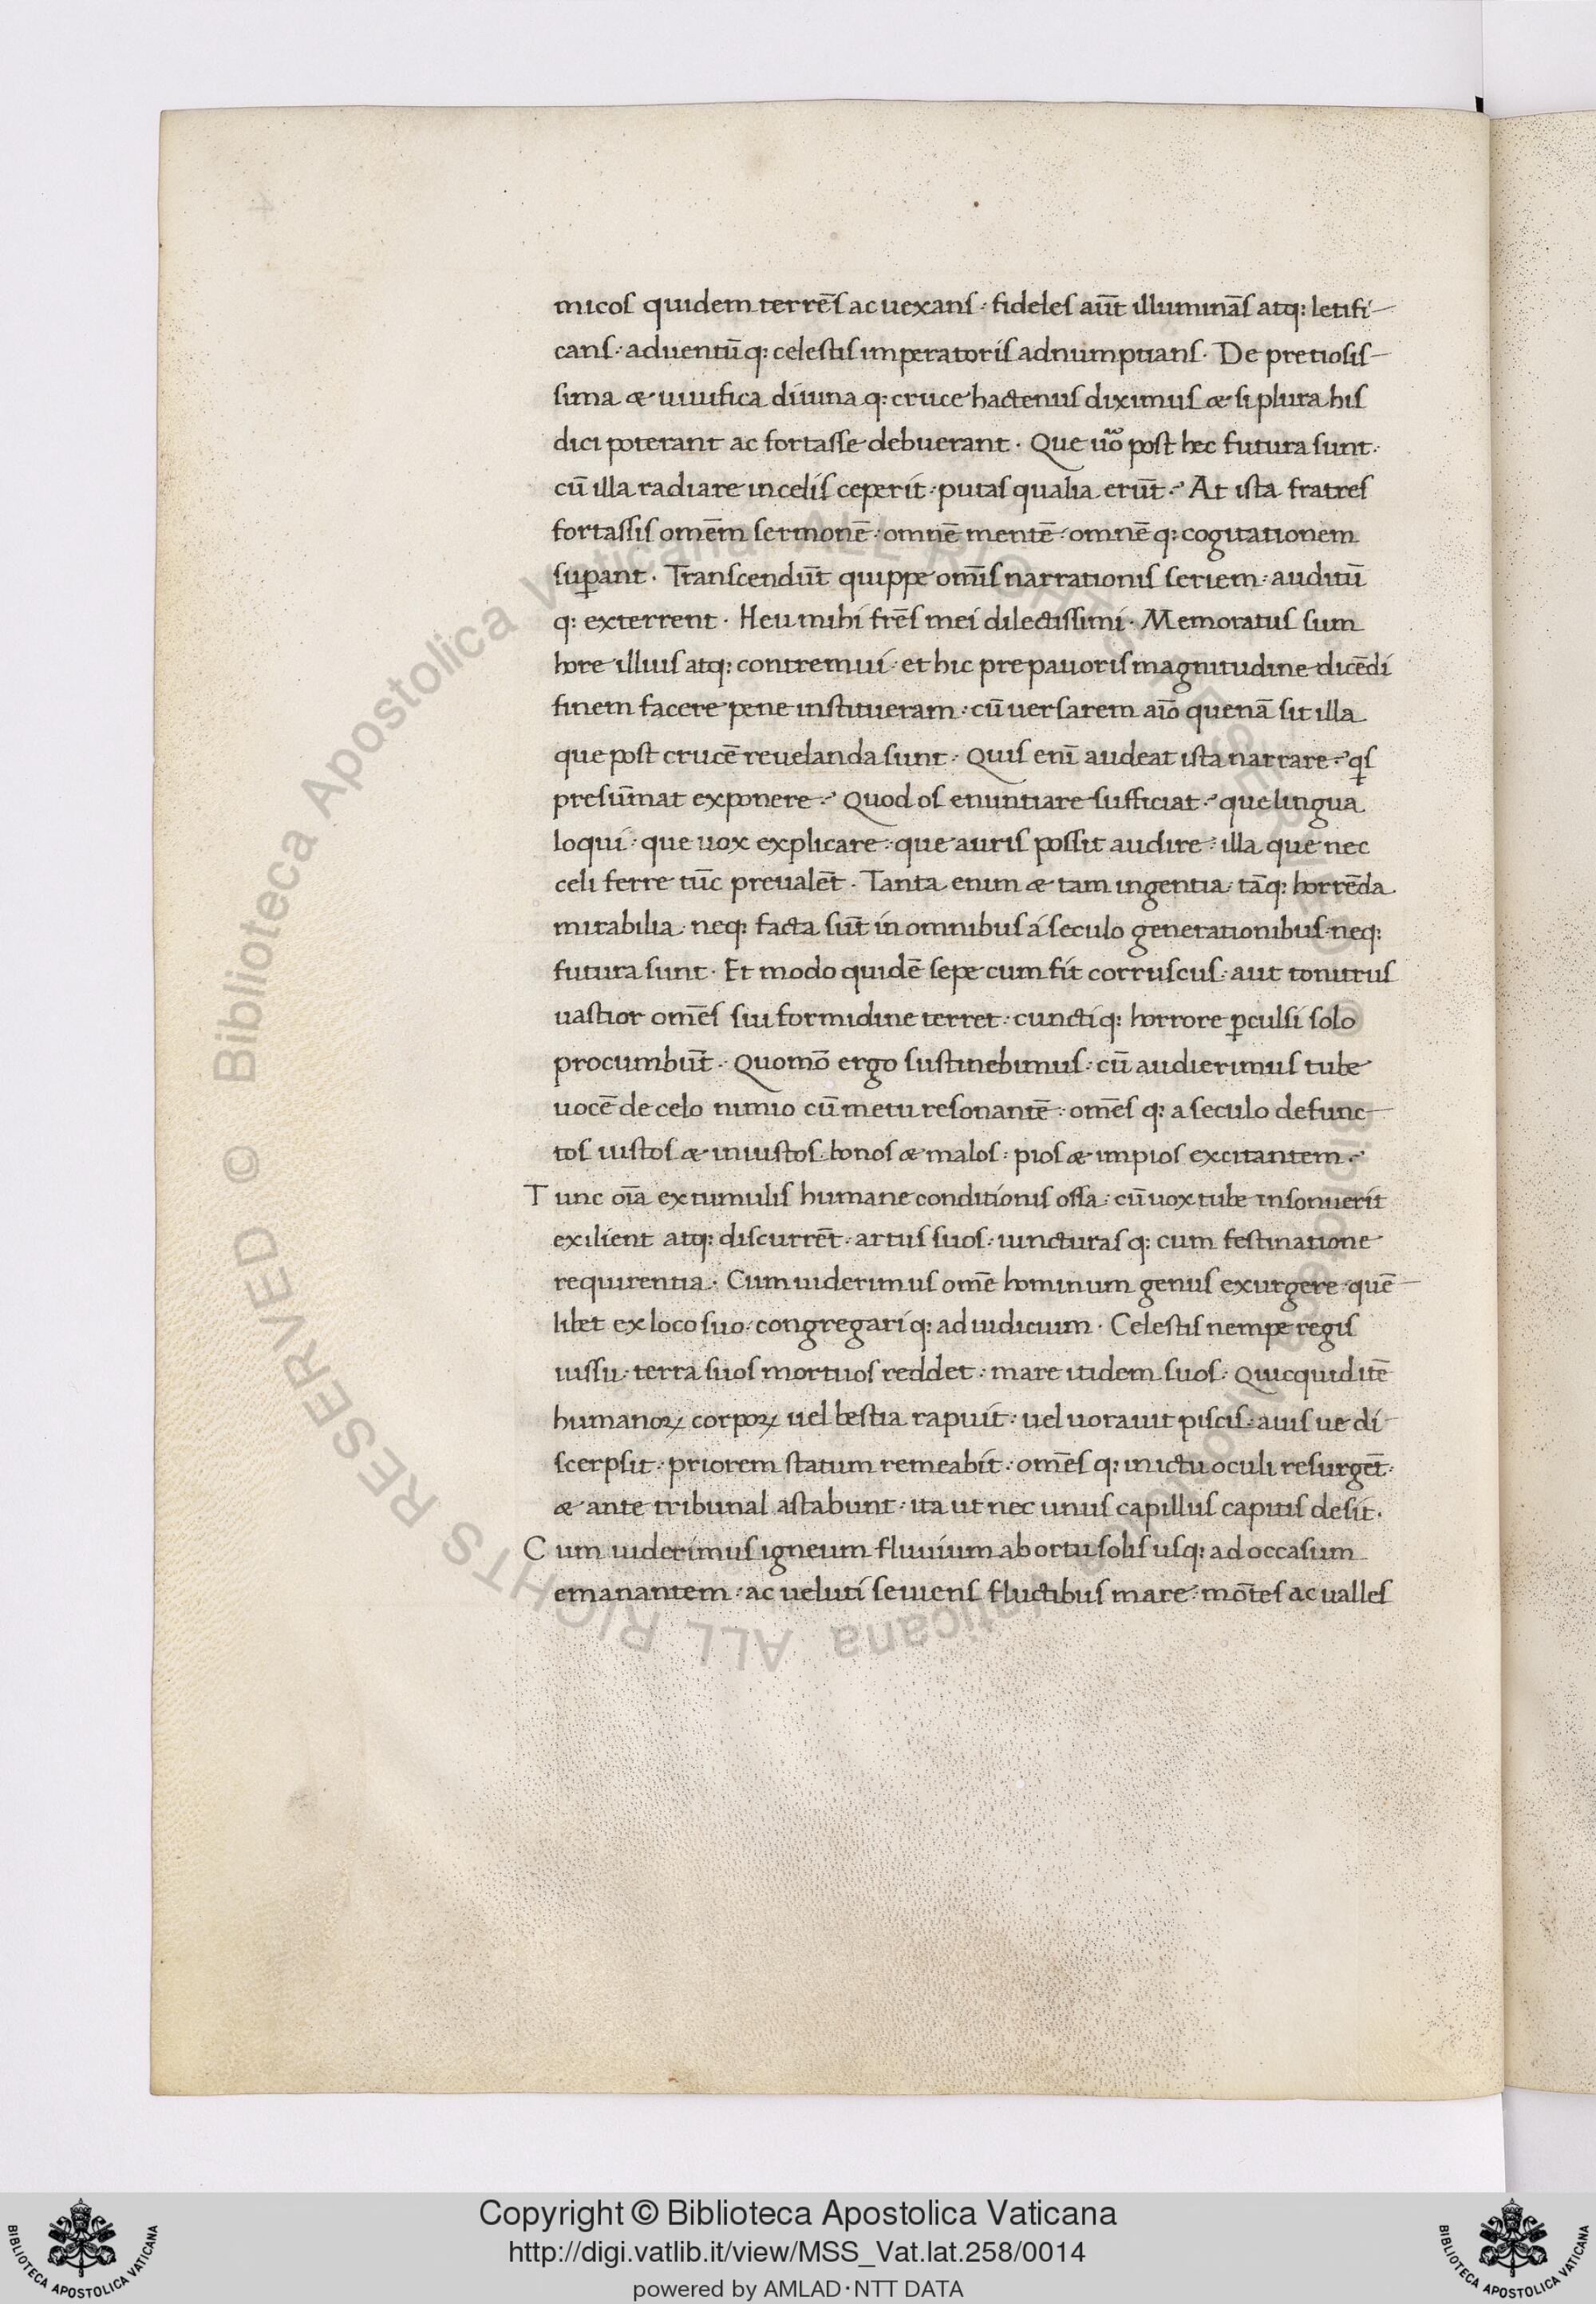 micos quidem terrēs ac uexans · fideles aūt illuminās atq: letifi-
cans · aduentūq: celestis imperatoris adnumptians · De pretiosis-
sima æ uiuifica diuina q: cruce hactenus diximus æ si plura his
dici poterant ac fortasse debuerant · Que uo᷃ post hec futura sunt ·
cū illa radiare in celis ceperit · putas qualia erūt · At ista fratres
fortassis omēm sermonē · omnē mentē · omnē q: cogitationem
suꝑant · Transcendūt quippe om̄is narrationis seriem · auditū
q: exterrent · Heu mihi frēs mei dilectissimi · Memoratus sum
hore illius atq: contremui · et hic pre pauoris magnitudine dicēdi
finem facere pene institueram · cū uersarem aīo quenā sit illa
que post crucē reuelanda sunt · Quis enī audeat ista narrare · qͥs
presūmat exponere · Quod os enuntiare sufficiat · que lingua
loqui · que uox explicare · que auris possit audire · illa que nec
celi ferre tūc preualēt · Tanta enim æ tam ingentia · tāq: horrēda
mirabilia · neq: facta sūt in omnibus á seculo generationibus · neq:
futura sunt · Et modo quidē sepe cum fit corruscus · aut tonitrus
uastior omēs sui formidine terret · cuncti q: horrore ꝑculsi solo
procumbūt · Quomō ergo sustinebimus · cū audierimus tube
uocē de celo nimio cū metu resonantē · omēs q: a seculo defunc-
tos iustos æ iniustos · bonos æ malos · pios æ impios excitantem ·
Tunc oīa ex tumulis humane conditionis ossa · cū uox tube insonuerit
exilient atq: discurrēt · artus suos · iuncturas q: cum festinatione
requirentia · Cum uiderimus omē hominum genus exurgere · quē-
libet ex loco suo · congregari q: ad iudicium · Celestis nempe regis
iussu · terra suos mortuos reddet · mare itidem suos · Quicquid itē
humanoꝝ corpoꝝ uel bestia rapuit · uel uorauit piscis · auis ue di-
scerpsit · priorem statum remeabit · omēs q: in ictu oculi resurgēt ·
æ ante tribunal astabunt · ita ut nec unus capillus capitis desit ·
Cum uiderimus igneum fluuium ab ortu solis usq: ad occasum
emanantem · ac ueluti seuiens fluctibus mare · mōtes ac ualles
Biblioteca Apostolica Vaticana ALL RIGHTS RESERVED ©
Copyright © Biblioteca Apostolica Vaticana
http://digi.vatlib.it/view/MSS_Vat.lat.258/0014
powered by AMLAD·NTT DATA
BIBLIOTECA APOSTOLICA VATICANA
BIBLIOTECA APOSTOLICA VATICANA